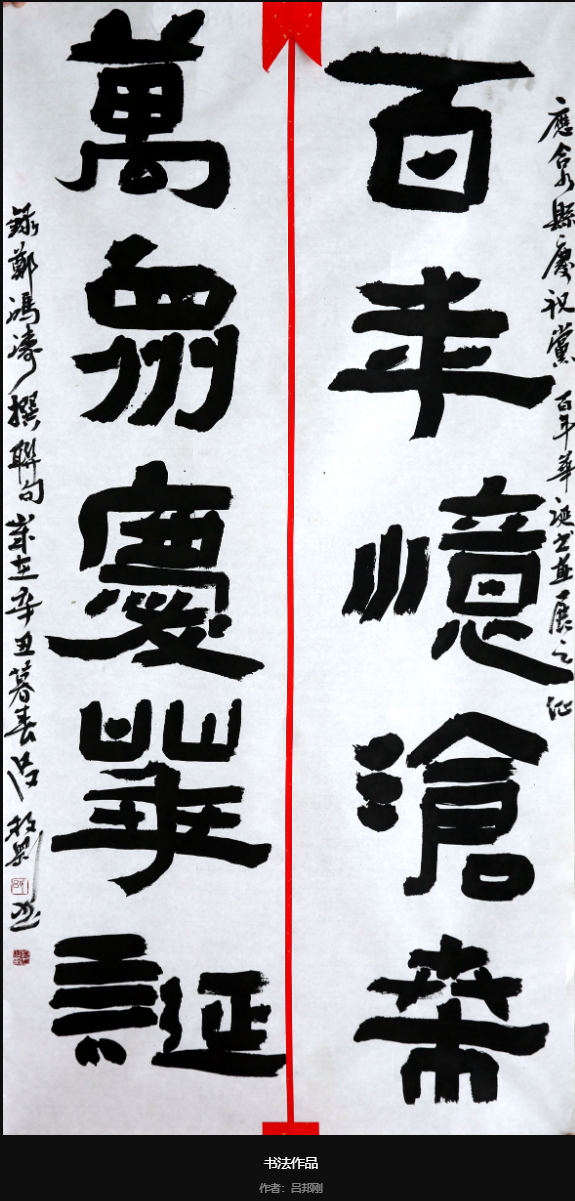 應合水縣慶祝黨百年華誕書畫展之征
百年憶滄桑
萬眾慶華誕
錄鄭馮濤撰聯句歲在辛丑暮春呂邦剛
书法作品
作者：吕邦刚